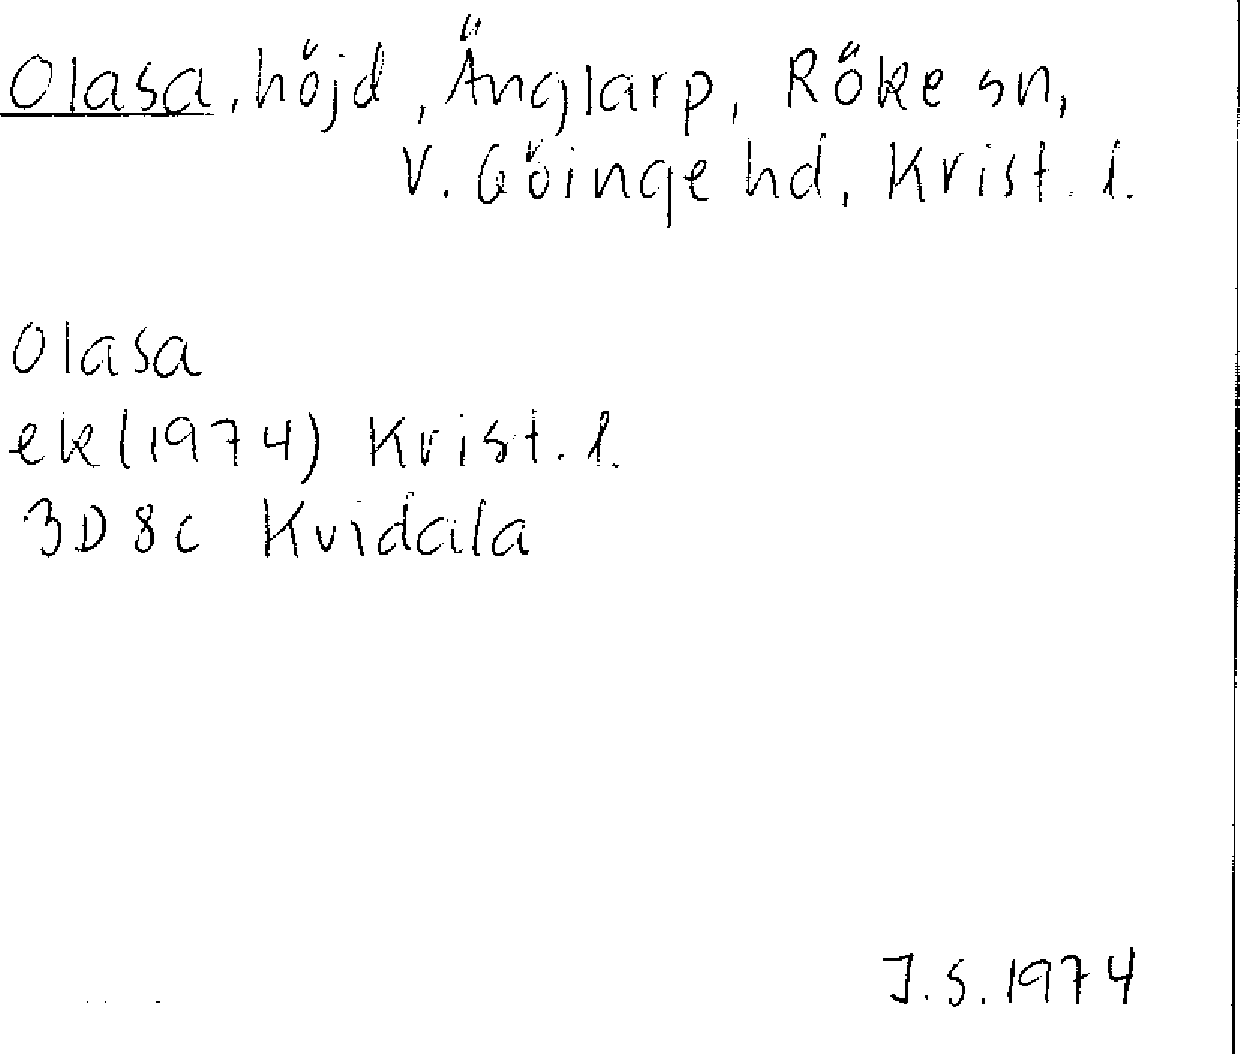 Olasa, höjd, Änglarp, Röke sn,
V. Göinge hd, Krist. l.
Olasa
ek (1974) Krist. l.
3D 8c Kvidala
J.S. 1974